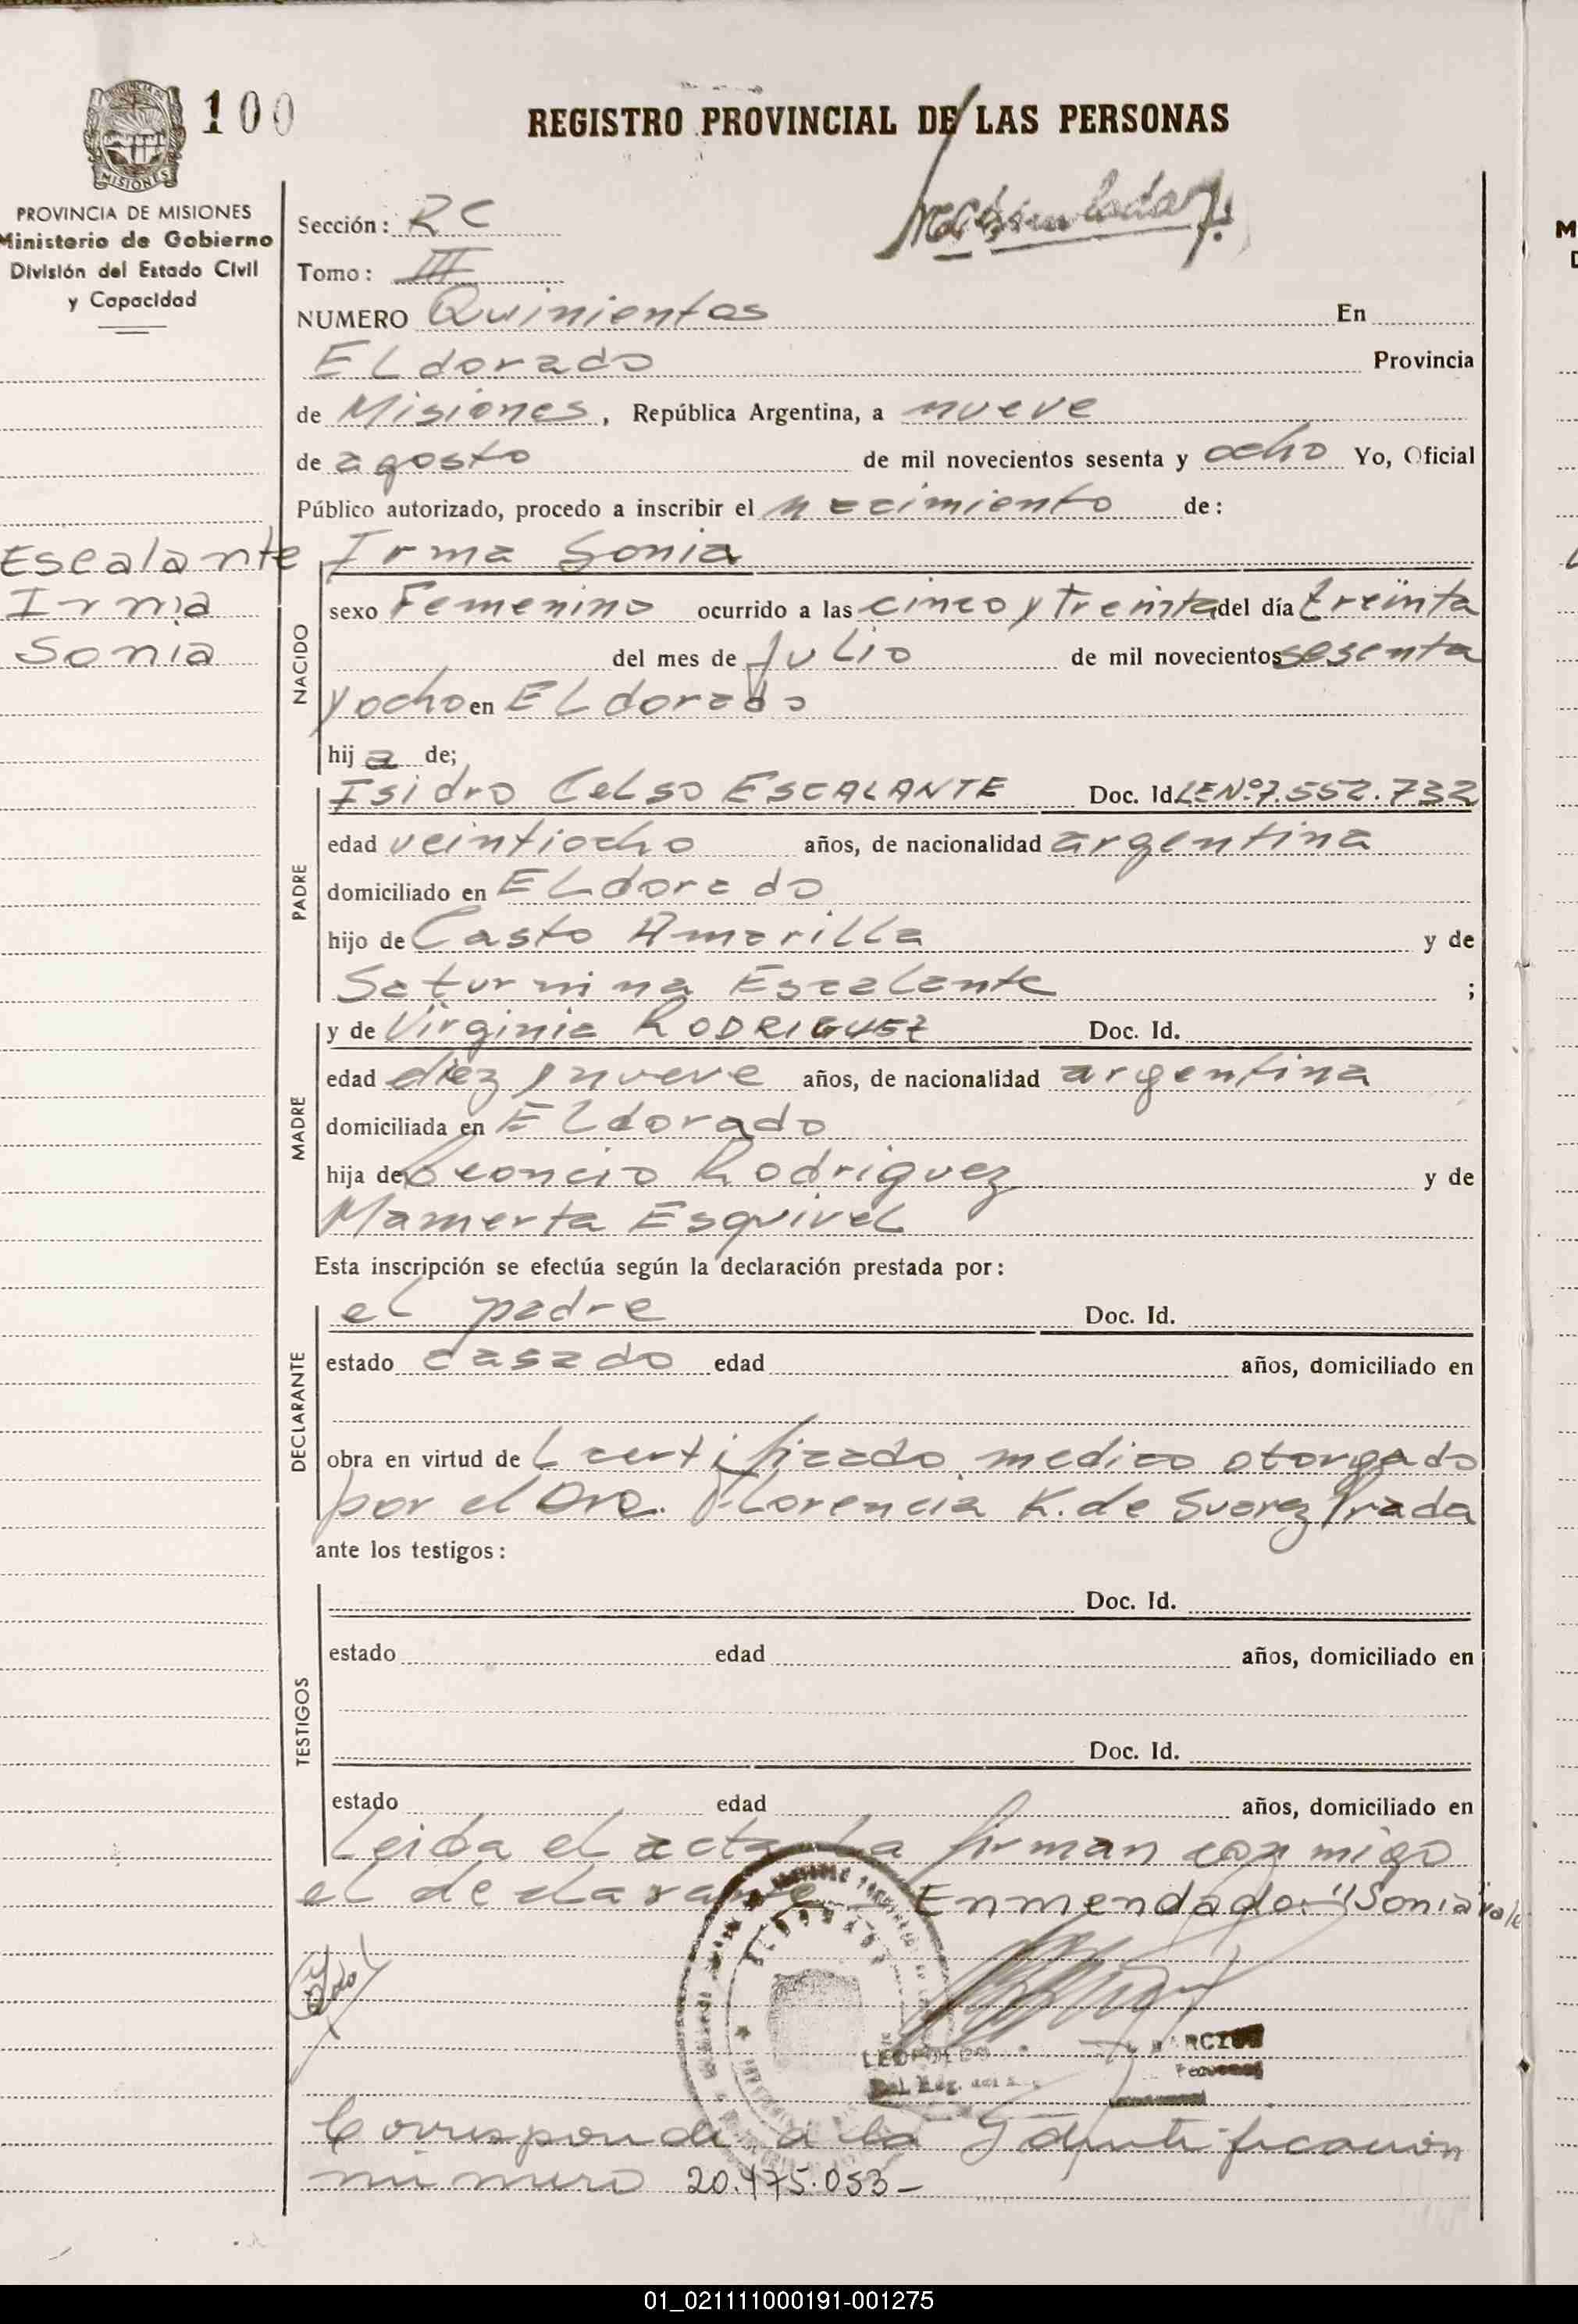 100
REGISTRO PROVINCIAL DE LAS PERSONAS
MISIONES
PROVINCIA DE MISIONES
Ministerio de Gobierno
División del Estado Civil
y Capacidad
Sección: RC
Tomo: III
NUMERO Quinientos En
ELdorado Provincia
de Misiones, República Argentina, a nueve
de agosto de mil novecientos sesenta y ocho Yo, Oficial
Público autorizado, procedo a inscribir el nacimiento de:
Escalante
Irma
Sonia
Irma Sonia
NACIDO
sexo Femenino ocurrido a las cinco y Treinta del día treinta
del mes de Julio de mil novecientos sesenta
y ocho en ELdorado
hija de;
PADRE
Isidro Celso ESCALANTE Doc. Id. LENº7.552.732
edad veintiocho años, de nacionalidad argentina
domiciliado en ELdorado
hijo de Casto Amarilla y de
Saturnina Escalante ;
MADRE
y de Virginia RODRIGUEZ Doc. Id.
edad diez y nueve años, de nacionalidad argentina
domiciliada en ELdorado
hija de Leoncio Rodriguez y de
Mamerta Esquivel
Esta inscripción se efectúa según la declaración prestada por:
DECLARANTE
el padre Doc. Id.
estado casado edad años, domiciliado en
obra en virtud de L certificado medico otorgado
por el Dra. Florencia K. de Suarez Prada
ante los testigos:
TESTIGOS
Doc. Id.
estado edad años, domiciliado en
Doc. Id.
estado edad años, domiciliado en
Leida el acta La firman conmigo
el declarante Enmendado: "Sonia" vale
LEOPOLDO
Corresponde a la Identificación
numero 20.475.053-
01_021111000191-001275